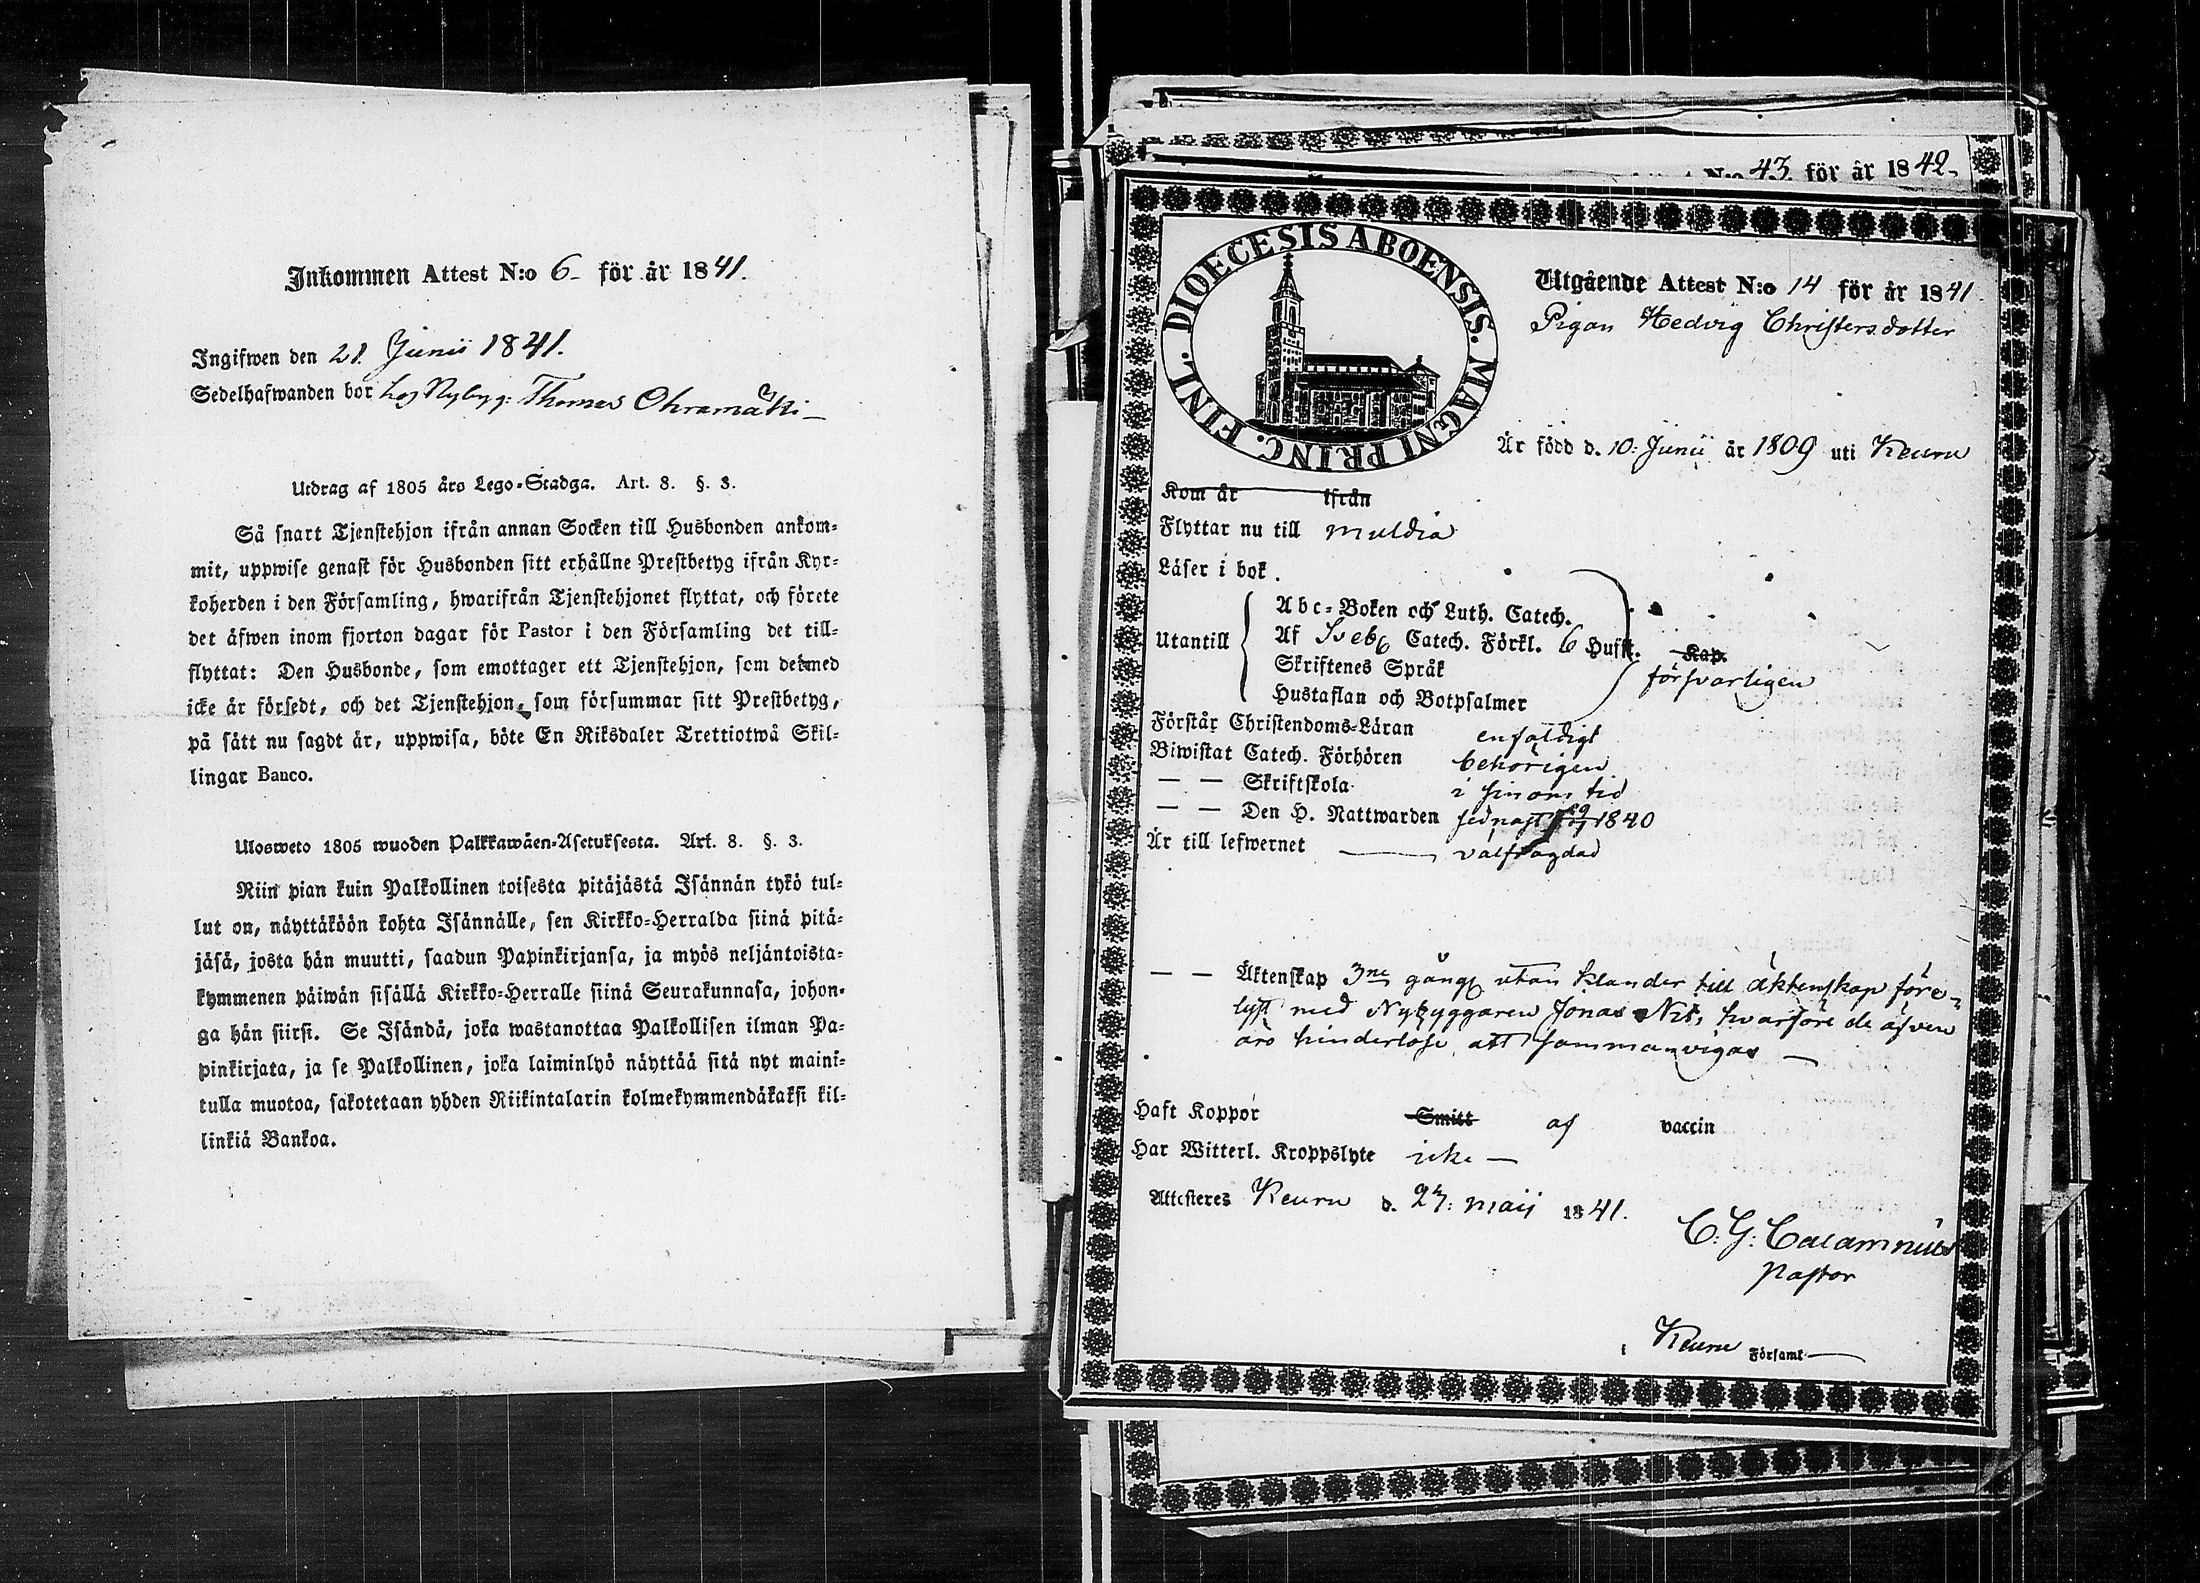 Inkommen Attest N:o 6 för år 1841.
Ingifwen den 21. Junii 1841.
Sedelhafwanden bor hos Nybyg: Thomas Ohramäki
Utdrag af 1805 års Lego-Stadga. Art. 8. §. 3.
Så snart Tjenstehjon ifrån annan Socken till Husbonden ankom-
mit, uppwise genast för Husbonden sitt erhållne Prestbetyg ifrån Kyr-
koherden i den Församling, hwarifrån Tjenstehjonet flyttat, och förete
det äfwen inom fjorton dagar för Pastor i den Församling det till-
flyttat: Den Husbonde, som emottager ett Tjenstehjon, som dermed
icke är försedt, och det Tjenstehjon, som försummar sitt Prestbetyg,
på sätt nu sagdt är, uppwisa, böte En Riksdaler Trettiotwå Skil-
lingar Banco.
Ulosweto 1805 wuoden Palkkawäen-Asetuksesta. Art. 8. §. 3.
Niin pian kuin Palkollinen toisesta pitäjästä Isännän tykö tul-
lut on, näyttäköön kohta Isännälle, sen Kirkko-Herralda siinä pitä-
jäsä, josta hän muutti, saadun Papinkirjansa, ja myös neljäntoista-
kymmenen päiwän sisällä Kirkko-Herralle siinä Seurakunnasa, johon-
ga hän siirsi. Se Isändä, joka wastanottaa Palkollisen ilman Pa-
pinkirjata, ja se Palkollinen, joka laiminlyö näyttää sitä nyt maini-
tulla muotoa, sakotetaan yhden Riikintalarin kolmekymmendäkaksi kil-
linkiä Bankoa.
N:o 43. för år 1842.
DIOECESIS ABOENSIS. MAGNI PRINC. FINL.
Utgående Attest N:o 14 för år 1841.
Pigan Hedvig Christersdotter
Är född d. 10: Junii år 1809 uti Keuru
Kom år ifrån
Flyttar nu till Muldia
Läser i bok.
Utantill
Abc-Boken och Luth. Catech.
Af Sveb. Catech. Förkl. 6 Hufst. Kap.
Skriftenes Språk
försvarligen
Hustaflan och Botpsalmer
Förstår Christendoms-Läran enfaldigt
Biwistat Catech. Förhören behörigen
— — Skriftskola i sinom tid
— — Den H. Nattwarden sednast 1840
Är till lefwernet välfrägdad
— — Äktenskap 3ne gång utan klander till äktenskap före-
lyst med Nybyggaren Jonas hvarföre de äfven
äro hinderlöse att sammanvigas
Haft Koppor Smitt af vaccin
Har Witterl. Kroppslyte icke
Attesteres Keuru d. 27: Maij 1841.
C. G: Calamnius
Pastor
Keuru Församl